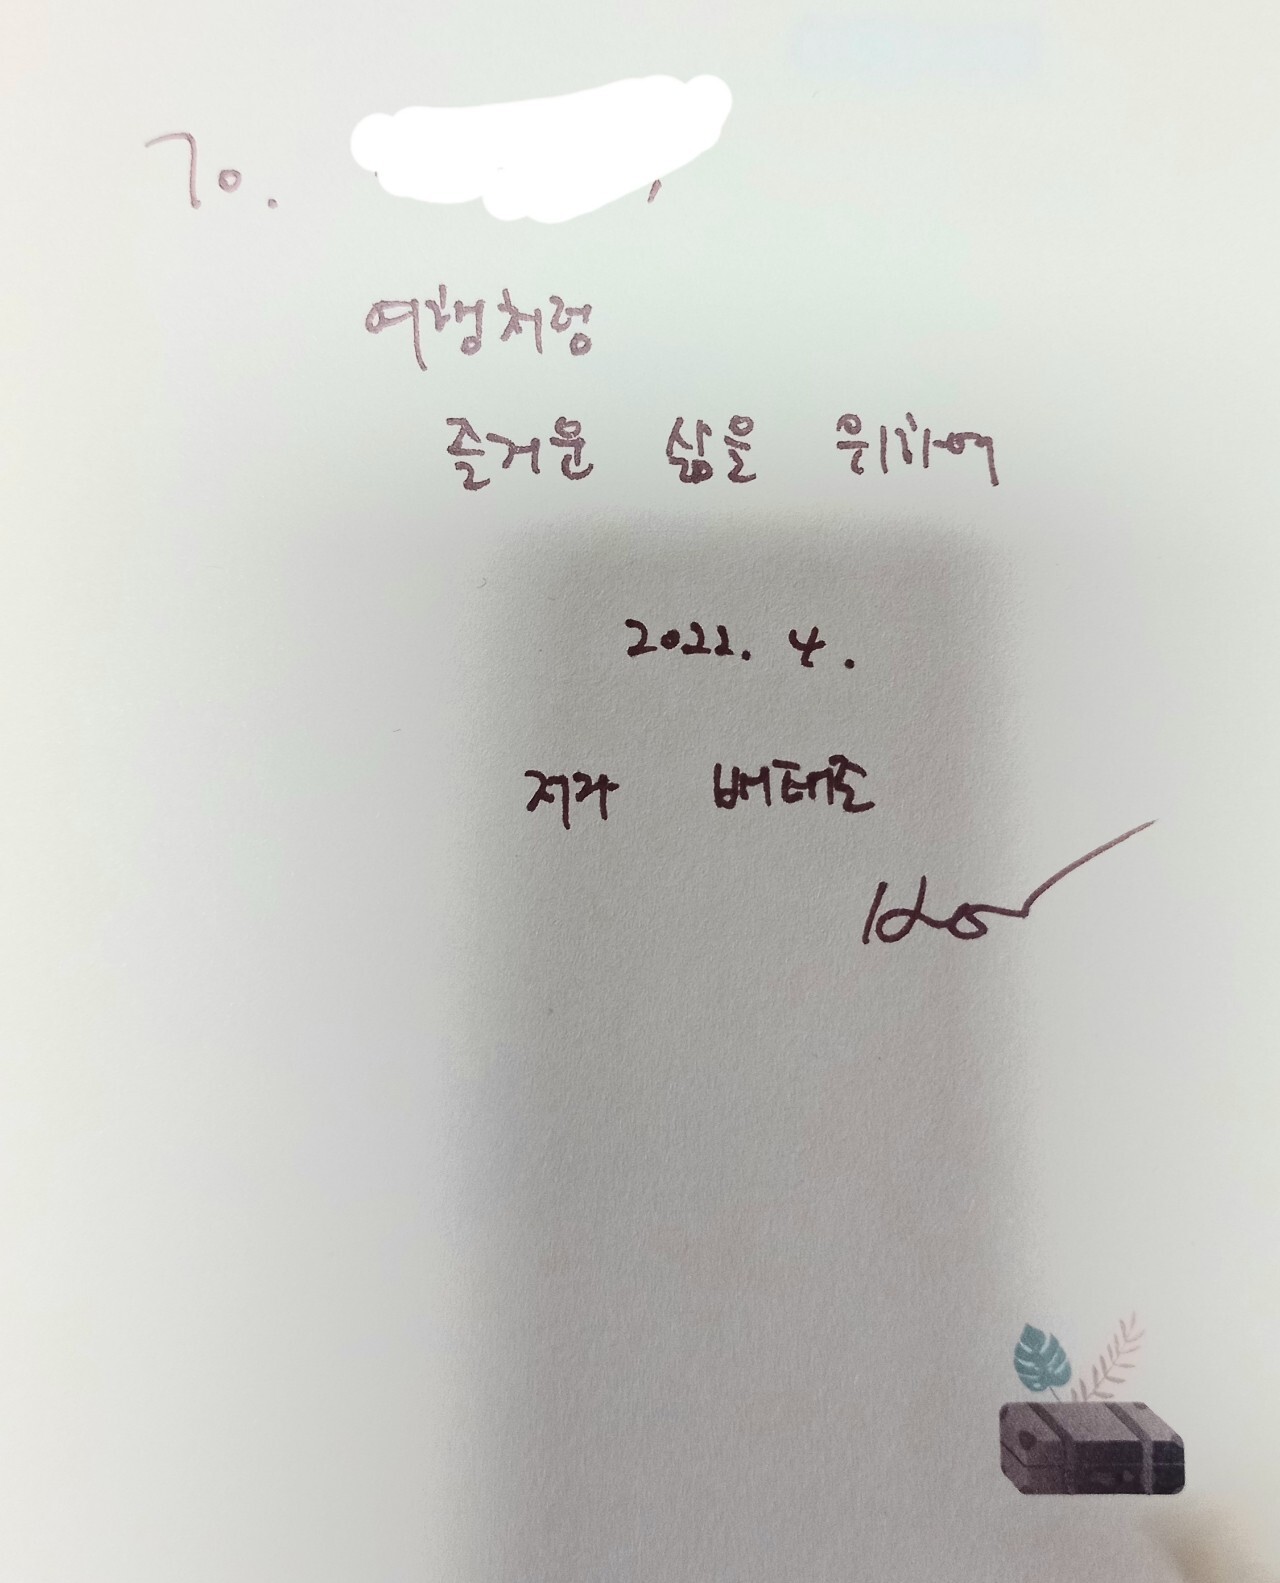 To. ,
여행처럼
즐거운 삶을 위하여
2022. 4.
저자 배태준